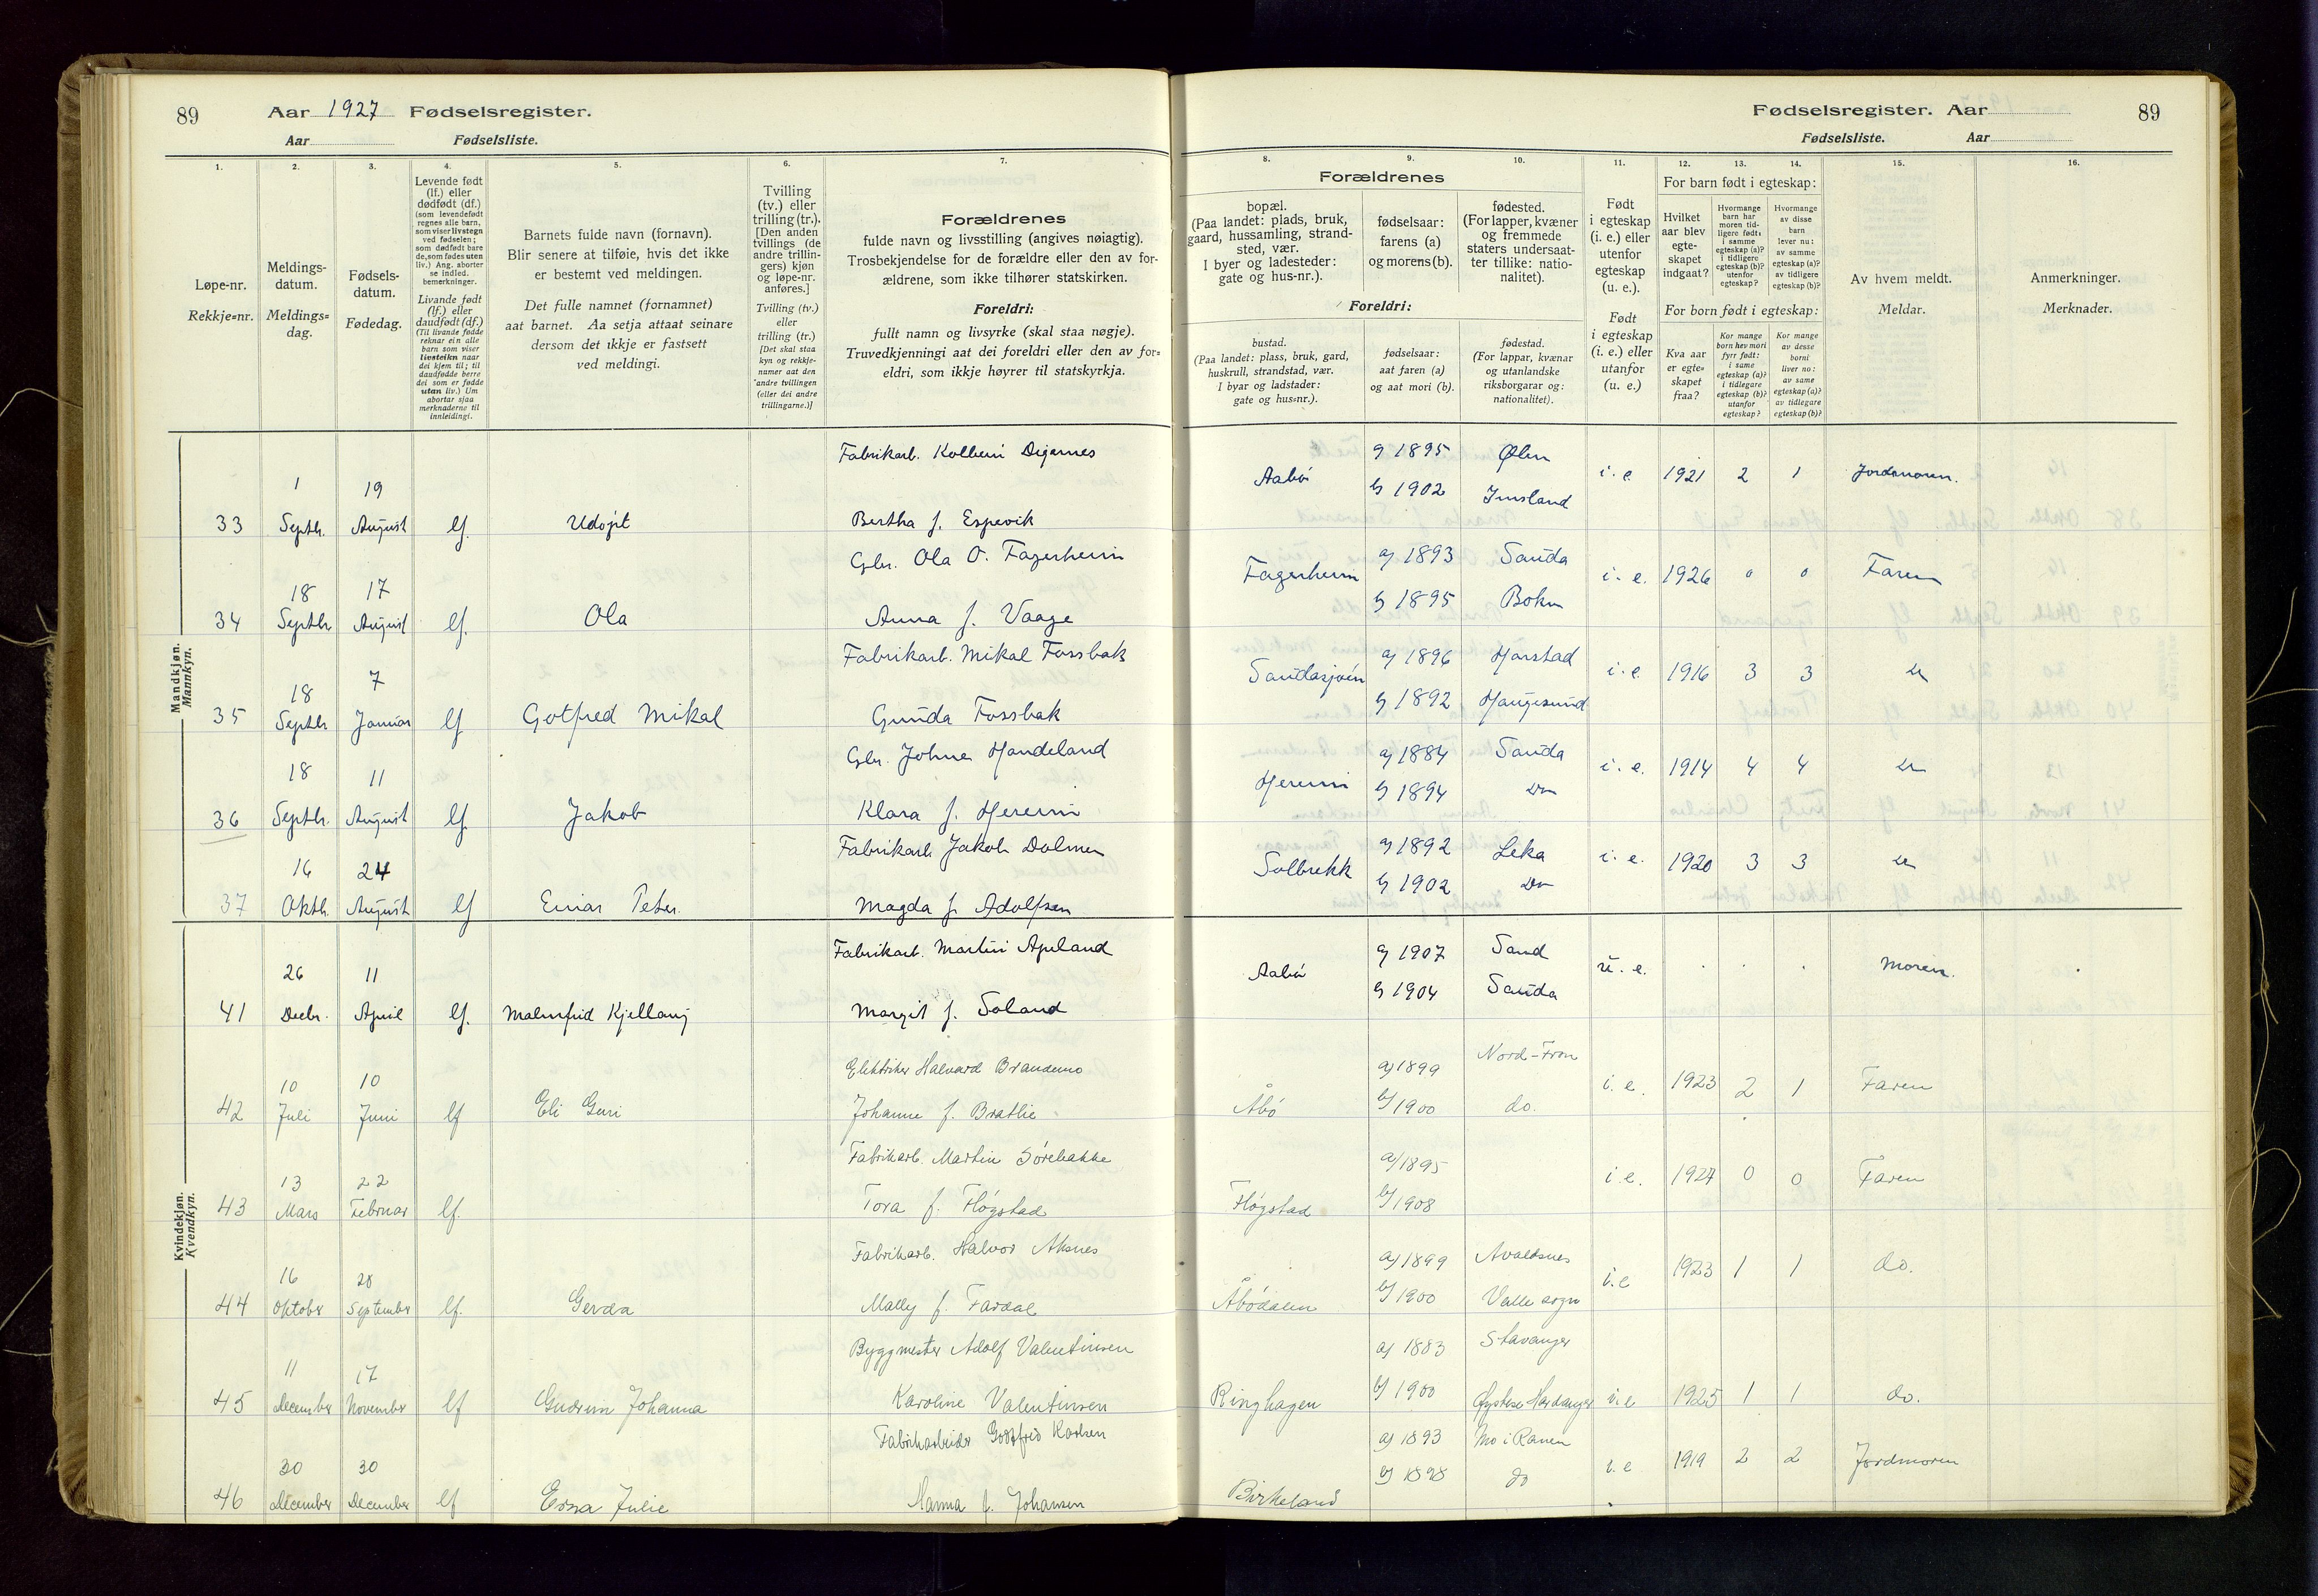 89 Aar 1927 Fødselsregister.
Aar Fødselsliste.
1. 2. 3. 4. 5. 6. 7.
Løpe-nr.
Rekkje=nr.
Meldings-
datum.
Meldings=
dag.
Fødsels-
datum.
Fødedag.
Levende født
(lf.) eller
dødfødt (df.)
(som levendefødt
regnes alle barn,
som viser livstegn
ved fødselen;
som dødfødt bare
de, som fødes uten
liv.) Ang. aborter
se indled.
bemerkninger.
Livande født
(lf.) eller
daudfødt (df.)
(Til livande fødde
reknar ein alle
barn som viser
livsteikn naar
dei kjem til; til
daudfødde berre
dei som er fødde
utan liv.) Um
abortar sjaa
merknaderne til
innleidingi.
Barnets fulde navn (fornavn).
Blir senere at tilføie, hvis det ikke
er bestemt ved meldingen.
Det fulle namnet (fornamnet)
aat barnet. Aa setja attaat seinare
dersom det ikkje er fastsett
ved meldingi.
Tvilling
(tv.) eller
trilling (tr.).
[Den anden
tvillings (de
andre trillin-
gers) kjøn
og løpe-nr.
anføres.]
Tvilling (tv.)
eller
trilling (tr.)
[Det skal staa
kyn og rekkje-
numer aat den
andre tvillingen
(eller dei andre
trillingarne.)]
Forældrenes
fulde navn og livsstilling (angives nøiagtig).
Trosbekjendelse for de forældre eller den av for-
ældrene, som ikke tilhører statskirken.
Foreldri:
fullt namn og livsyrke (skal staa nøgje).
Truvedkjenningi aat dei foreldri eller den av for=
eldri, som ikkje høyrer til statskyrkja.
Mandkjøn.
Mannkyn.
Fabrikarb. Kolbein Digernes
1 19
33 Septbr. August lf. Udøpt Bertha f. Espevik
Gbr. Ola O. Fagerheim
18 17
34 Septbr August lf. Ola Anna f. Vaage
Fabrikarb. Mikal Fossbak
18 7
35 Septbr Januar lf Gotfred Mikal Gunda Fossbak
Gbr. Johne Handeland
18 11
36 Septbr. August lf. Jakob Klara f. Hereim
Fabrikarb. Jakob Dolmen
16 24
37 Oktb. August lf Einar Peter. Magda f. Adolfsen
Kvindekjøn.
Kvendkyn.
Fabrikarb. Martin Apeland
26 11
41 Decbr. April lf. Malmfrid Kjellaug Margit f. Soland
Elektriker Halvard Brandemo
10 10
42 Juli Juni lf Eli Guri Johanne f. Bratlie
Fabrikarb. Martin Sørebakke
13 22
43 Mars Februar lf. Tora f. Fløgstad
Fabrikarb. Halvor Aksnes
16 28
44 Oktober September lf. Gerda Mally f. Fardal
Byggmester Adolf Valentinsen
11 17
45 December November lf Gudrun Johanna Karoline Valentinsen
Fabrikarbeider Godtfred Karlsen
30 30
46 December December lf Erna Julie Hanna f. Johansen
Fødselsregister. Aar 89
Fødselsliste. Aar
8. 9. 10. 11. 12. 13. 14. 15. 16.
Forældrenes
bopæl.
(Paa landet: plads, bruk,
gaard, hussamling, strand-
sted, vær.
I byer og ladesteder:
gate og hus-nr.).
fødselsaar:
farens (a)
og morens (b).
fødested.
(For lapper, kvæner
og fremmede
staters undersaat-
ter tillike: natio-
nalitet).
Foreldri:
bustad.
(Paa landet: plass, bruk, gard,
huskrull, strandstad, vær.
I byar og ladstader:
gate og hus=nr.).
fødselsaar:
aat faren (a)
og aat mori (b).
fødestad.
(For lappar, kvænar
og utanlandske
riksborgarar og:
nationalitet).
Født
i egteskap
(i. e.) eller
utenfor
egteskap
(u. e.).
Født
i egteskap
(i. e.) eller
utanfor
(u. e.)
For barn født i egteskap:
Hvilket
aar blev
egte-
skapet
indgaat?
Hvormange
barn har
moren tid-
ligere født:
i samme
egteskap (a)?
i tidligere
egteskap (b)?
utenfor
egteskap?
Hvormange
av disse
barn
lever nu:
av samme
egteskap (a)?
av tidligere
egteskap (b)?
For born født i egteskap:
Kva aar
er egte=
skapet
fraa?
Kor mange
born hev mori
fyrr født:
i same
egteskap (a)?
i tidlegare
egteskap (b)?
utanfor
egteskap?
Kor mange
av desse
borni
liver no:
av same
egteskap (a)?
av tidlegare
egteskap (b)?
Av hvem meldt.
Meldar.
Anmerkninger.
Merknader.
a) 1895 Ølen
Aabø i. e. 1921 2 1 Jordmoren.
b) 1902 Imsland
a) 1893 Sauda
Fagerheim i. e. 1926 0 0 Faren
b) 1895 Bokn
a) 1896 Harstad
Saudasjøen i. e. 1916 3 3 Do
b) 1892 Haugesund
a) 1884 Sauda
Hereim i. e. 1914 4 4 Do
b) 1894 Do
a) 1892 Leka
Solbrekk i. e. 1920 3 3 Do
b) 1902 Do
a) 1907 Sand
Aabø u. e. . . . Moren. .
b) 1904 Sauda
a) 1899 Nord-Fron
i. e. 1923 2 1 Faren
Åbø b) 1900 do.
a) 1895
i. e. 1927 0 0 Faren
Fløgstad b) 1908
a) 1899 Avaldsnes
i. e 1923 1 1 do.
Åbødalen b) 1900 Valle sogn
a) 1883 Stavanger
Ringhagen b) 1900 Øystese Hardanger i. e 1925 1 1 do.
a) 1893 Mo i Ranen
i. e 1919 2 2 Jordmoren
Birkeland b) 1898 do